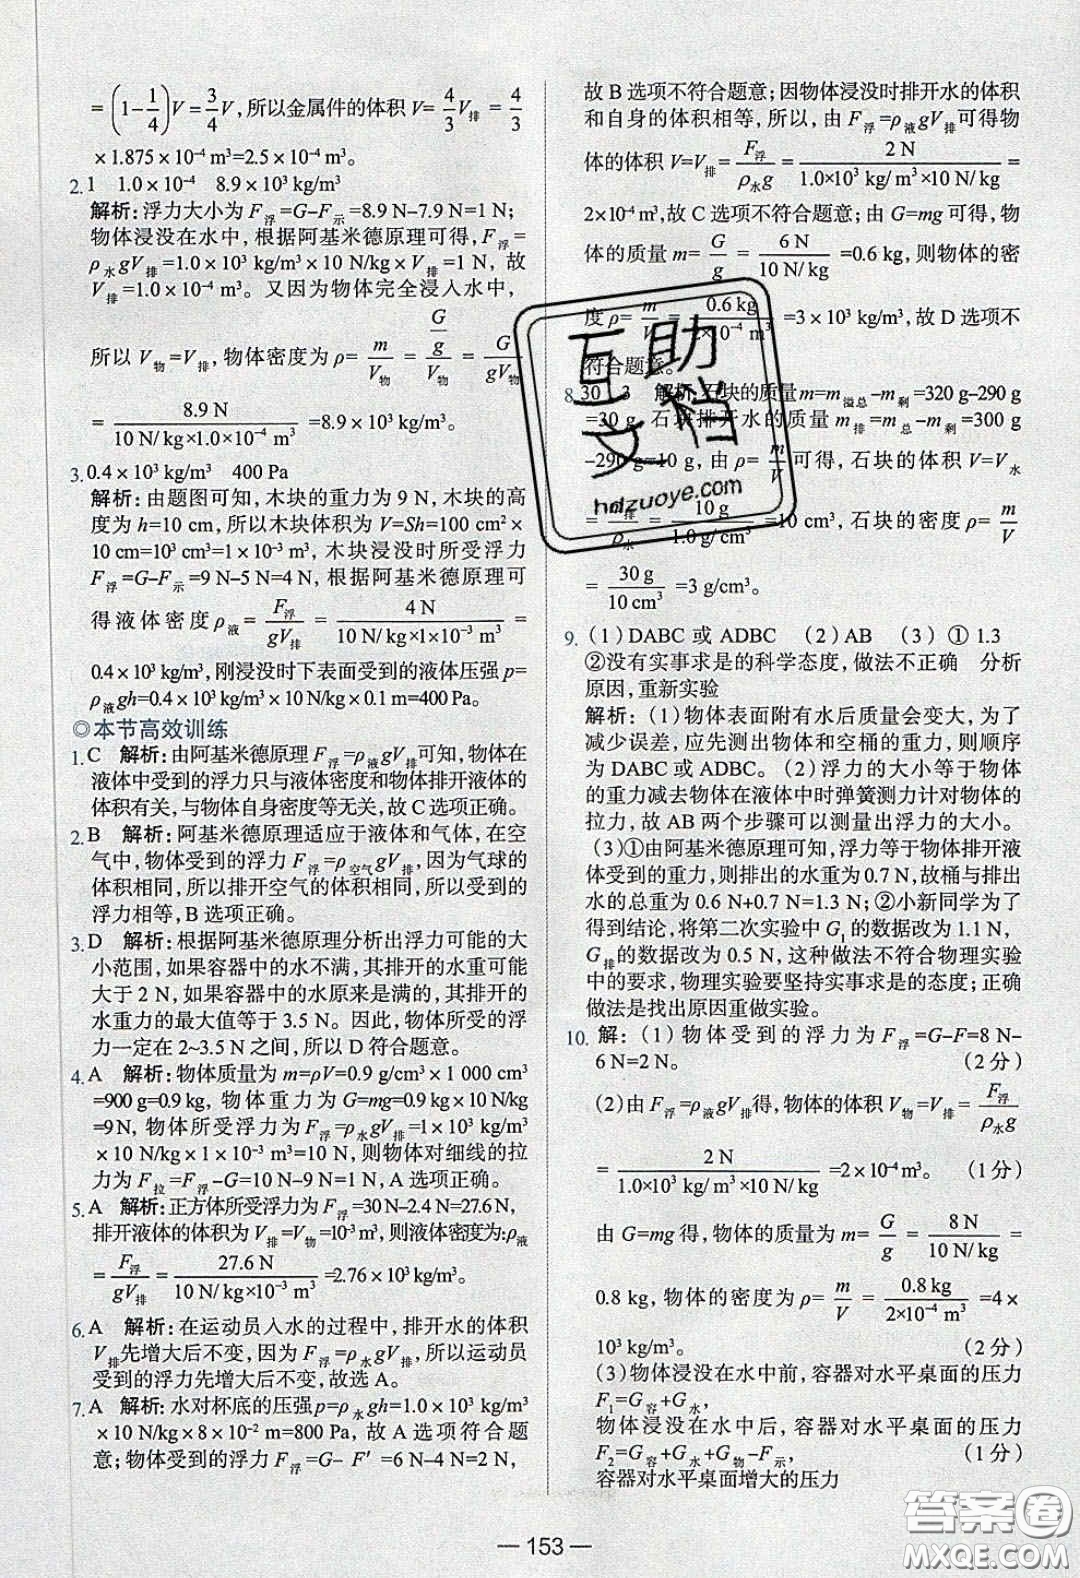 =(1-1/4)V=3/4V,所以金属件的体积 V=4/3V排=4/3
×1.875×10⁻⁴ m³=2.5×10⁻⁴ m³。
2.1　1.0×10⁻⁴　8.9×10³ kg/m³
解析:浮力大小为 F浮=G–F示=8.9 N–7.9 N=1 N;
物体浸没在水中，根据阿基米德原理可得，F浮=
ρ水gV排=1.0×10³ kg/m³×10 N/kg×V排=1 N，故
V排=1.0×10⁻⁴ m³。又因为物体完全浸入水中，
所以 V物=V排，物体密度为 ρ=m/V物=(G/g)/V物=G/gV物
=8.9 N/(10 N/kg×1.0×10⁻⁴ m³)=8.9×10³ kg/m³。
3.0.4×10³ kg/m³　400 Pa
解析:由题图可知,木块的重力为 9 N,木块的高
度为 h=10 cm,所以木块体积为 V=Sh=100 cm²×
10 cm=10³ cm³=1×10⁻³ m³,木块浸没时所受浮力
F浮=G–F示=9 N–5 N=4 N,根据阿基米德原理可
得液体密度 ρ液=F浮/gV排=4 N/(10 N/kg×1×10⁻³ m³)=
0.4×10³ kg/m³,刚浸没时下表面受到的液体压强 p=
ρ液gh=0.4×10³ kg/m³×10 N/kg×0.1 m=400 Pa。
◎本节高效训练
1.C　解析:由阿基米德原理 F浮=ρ液gV排可知,物体在
液体中受到的浮力只与液体密度和物体排开液体的
体积有关,与物体自身密度等无关,故 C 选项正确。
2.B　解析:阿基米德原理适应于液体和气体,在空
气中,物体受到的浮力 F浮=ρ空气gV排,因为气球的
体积相同,所以排开空气的体积相同,所以受到的
浮力相等,B 选项正确。
3.D　解析:根据阿基米德原理分析出浮力可能的大
小范围,如果容器中的水不满,其排开的水重可能
大于 2 N,如果容器中的水原来是满的,其排开的
水重力的最大值等于 3.5 N。因此,物体所受的浮
力一定在 2~3.5 N 之间,所以 D 符合题意。
4.A　解析:物体质量为 m=ρV=0.9 g/cm³×1 000 cm³
=900 g=0.9 kg，物体重力为 G=mg=0.9 kg×10 N/kg
=9 N，物体所受浮力为 F浮=ρ水gV排=1×10³ kg/m³
×10 N/kg×1×10⁻³ m³=10 N，则物体对细线的拉
力为 F拉=F浮–G=10 N–9 N=1 N,A 选项正确。
5.A　解析:正方体所受浮力为 F浮=30 N–2.4 N=27.6 N,
排开液体的体积为 V排=V物=10⁻³ m³,则液体密度为:ρ液
=F浮/gV排=27.6 N/(10 N/kg×10⁻³ m³)=2.76×10³ kg/m³。
6.A　解析:在运动员入水的过程中,排开水的体积
V排先增大后不变,因为 F浮=ρ水gV排,所以运动员
受到的浮力先增大后不变,故选 A。
7.A　解析:水对杯底的压强 p=ρ水gh=1.0×10³ kg/m³
×10 N/kg×8×10⁻² m=800 Pa，故 A 选项符合题
意;物体受到的浮力 F浮=G–F′=6 N–4 N=2 N,
故 B 选项不符合题意;因物体浸没时排开水的体积
和自身的体积相等,所以,由 F浮=ρ液gV排可得物
体的体积 V=V排=F浮/ρ水g=2 N/(1.0×10³ kg/m³×10 N/kg)=
2×10⁻⁴ m³,故 C 选项不符合题意;由 G=mg 可得,物
体的质量 m=G/g=6 N/10 N/kg=0.6 kg,则物体的密
度 ρ=m/V=0.6 kg/2×10⁻⁴ m³=3×10³ kg/m³,故 D 选项不
符合题意。
8.30　3　解析:石块的质量 m=m溢总–m剩=320 g–290 g
=30 g,石块排开水的质量 m排=m总–m剩=300 g
–290 g=10 g,由 ρ=m/V可得,石块的体积 V=V水
=m排/ρ水=10 g/1.0 g/cm³=10 cm³,石块的密度 ρ=m/V
=30 g/10 cm³=3 g/cm³。
9.(1)DABC 或 ADBC　(2)AB　(3)①1.3
②没有实事求是的科学态度,做法不正确　分析
原因,重新实验
解析:(1)物体表面附有水后质量会变大,为了
减少误差,应先测出物体和空桶的重力,则顺序
为 DABC 或 ADBC。(2)浮力的大小等于物体
的重力减去物体在液体中时弹簧测力计对物体的
拉力,故 AB 两个步骤可以测量出浮力的大小。
(3)①由阿基米德原理可知,浮力等于物体排开液
体受到的重力,则排出的水重为 0.7 N,故桶与排出
水的总重为 0.6 N+0.7 N=1.3 N;②小新同学为了
得到结论,将第二次实验中 G₁ 的数据改为 1.1 N,
G排的数据改为 0.5 N,这种做法不符合物理实验
中的要求,物理实验要坚持实事求是的态度;正确
做法是找出原因重做实验。
10.解:(1)物体受到的浮力为 F浮=G–F=8 N–
6 N=2 N。　(2 分)
(2)由 F浮=ρ液gV排得,物体的体积 V物=V排=F浮/ρ水g
=2 N/(1.0×10³ kg/m³×10 N/kg)=2×10⁻⁴ m³。　(1 分)
由 G=mg 得,物体的质量为 m=G/g=8 N/10 N/kg=
0.8 kg,物体的密度为 ρ=m/V=0.8 kg/2×10⁻⁴ m³=4×
10³ kg/m³。　(2 分)
(3)物体浸没在水中前,容器对水平桌面的压力
F₁=G容+G水,
物体浸没在水中后,容器对水平桌面的压力
F₂=G容+G水+G物–F示,　(1 分)
容器对水平桌面增大的压力
互助
文档
hdzuoye.com
— 153 —
答案圈
MXQE.COM